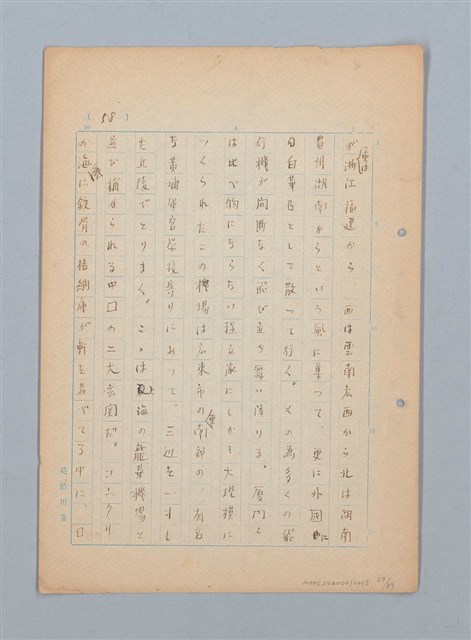 (58)
東は
が浙江福建から、西は雲南広西から北は湖南
貴州湖南からという風に集って、更に外国に
向白華尾として散って行く。その為多くの飛
行機が間断なく飛び立ち舞い降りる。厦門と
は比べ物にならない程立派にしかも大規模に
つくられたこの機場は広東市の南部の、有名
な黄埔軍官学校寄りにあって、三辺を一寸し
た丘陵でとりまく。ここは上海の龍華機場と
並び称せられる中国の二大玄関だ。ソックリ
の海に鉄骨の格納庫が軒を並べてる中に、日